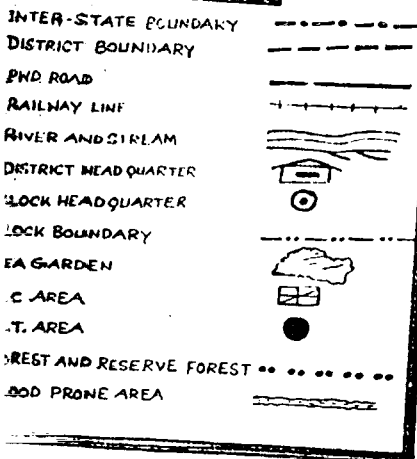 INTER-STATE BOUNDARY
DISTRICT BOUNDARY
PWD ROAD
RAILWAY LINE
RIVER AND STREAM
DISTRICT HEAD QUARTER
LOCK HEAD QUARTER
LOCK BOUNDARY
EA GARDEN
.C AREA
.T. AREA
REST AND RESERVE FOREST
OOD PRONE AREA